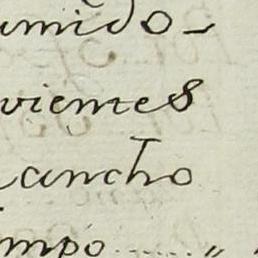 umido-
vientes
ancho
impo ...... "